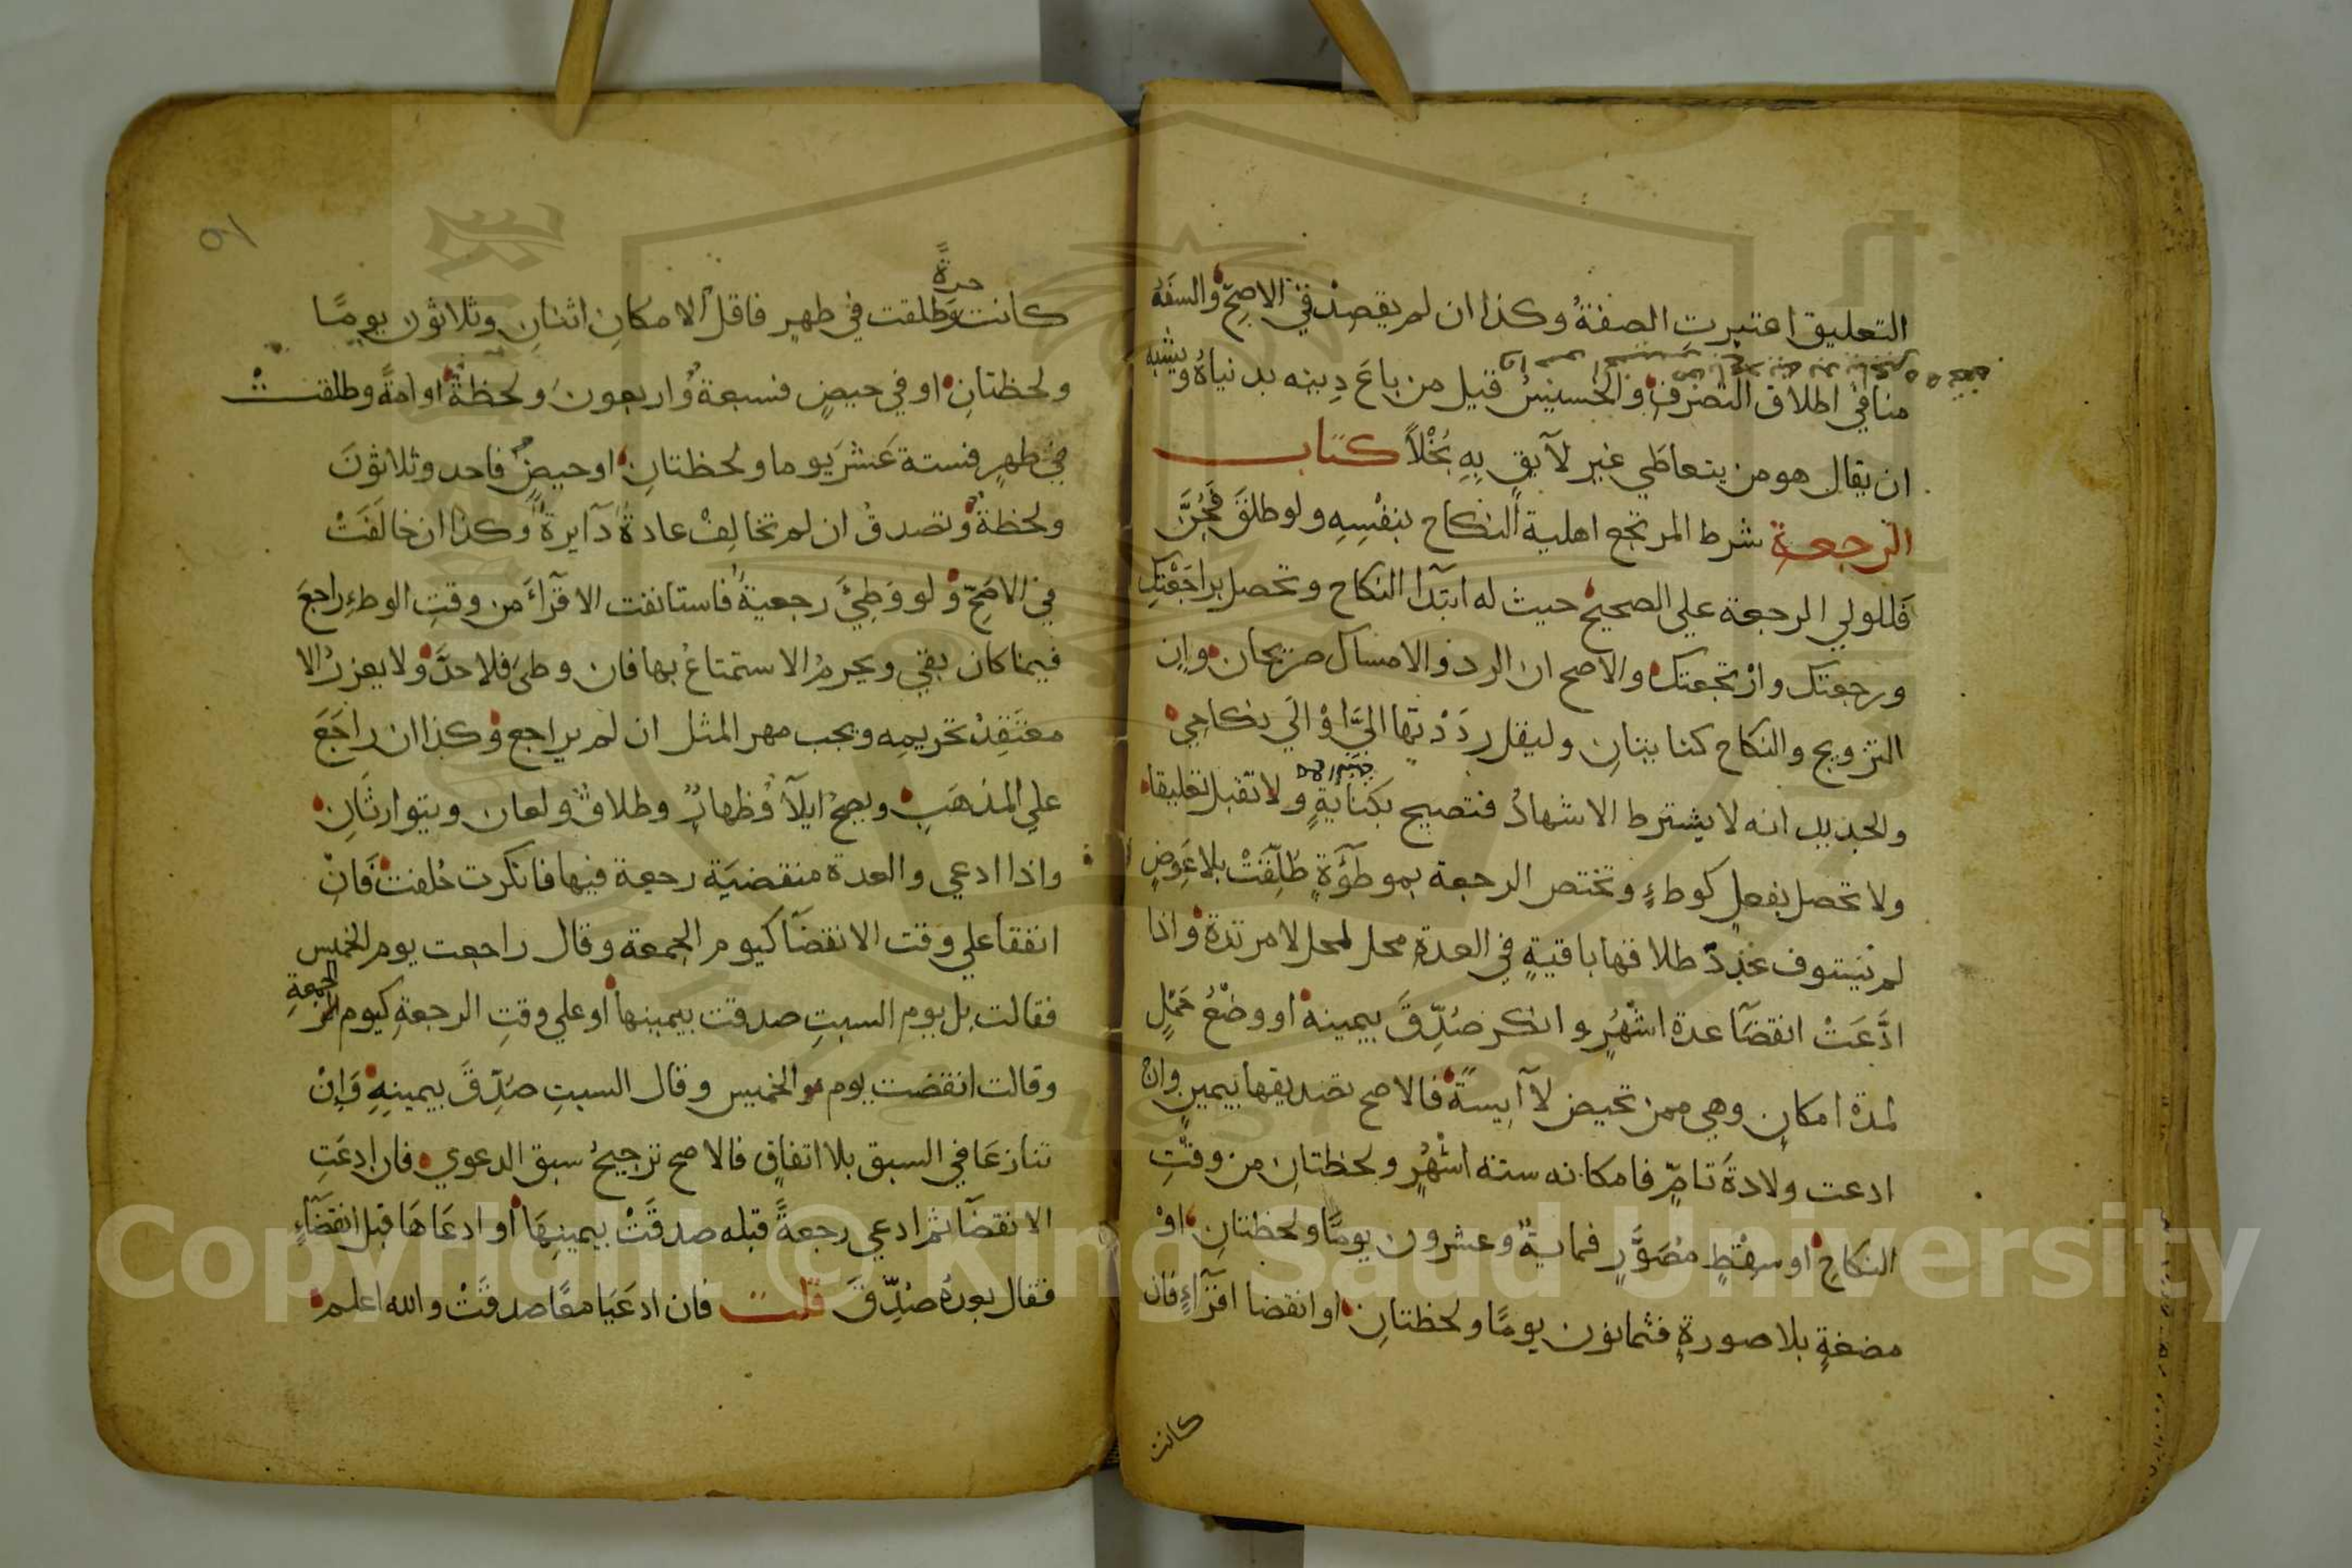 التعليق اعتبرت الصفة وكذا ان لم يقصد في الاصح والسفه
منافي اطلاق التصرف والخسيس قيل من باع دينه بدنياه ويشبه
ان يقال هو من يتعاطي غير لايق به بخلاً كتاب
الرجعة شرط المرتجع اهلية النكاح بنفسه ولو طلق فجن
فللولي الرجعة علي الصحيح حيث له ابتدا النكاح وتحصل براجعتك
ورجعتك وارتجعتك والاصح ان الرد والامساك صريحان وان
التزويج والنكاح كنايتان وليقل رددتها الي او الي نكاحي
والجديد انه لا يشترط الاشهاد فتصح بكناية ولا تقبل تعليقا
ولا تحصل بفعل كوطء وتختص الرجعة بموطوءة طلقت بلا عوض
لم يستوف عدد طلاقها باقية في العدة محل لحل لا مرتدة واذا
ادعت انقضا عدة اشهر وانكر صدق بيمينه او وضع حمل
لمدة امكان وهي ممن تحيض لا آيسة فالاصح تصديقها بيمين وان
ادعت ولادة تام فامكانه ستة اشهر ولحظتان من وقت
النكاح او سقط مصور فماية وعشرون يومًا ولحظتان او
مضغة بلا صورة فثمانون يومًا ولحظتان او انقضا اقرآء فان
كانت
حرة
كانت وطلقت في طهر فاقل الامكان اثنان وثلاثون يومًا
ولحظتان او في حيض فسبعة واربعون ولحظة او امة وطلقت
في طهر فستة عشر يوما ولحظتان او حيض فاحد وثلاثون
ولحظة وتصدق ان لم تخالف عادة دآيرة وكذا ان خالفت
في الاصح ولو وطئ رجعية فاستانفت الاقرآء من وقت الوطء راجع
فيما كان بقي ويحرم الاستمتاع بها فان وطئ فلا حد ولا يعزر الا
معتقد تحريمه ويجب مهر المثل ان لم يراجع وكذا ان راجع
علي المذهب ويصح ايلآ وظهار وطلاق ولعان ويتوارثان
واذا ادعي والعدة منقضية رجعة فيها فانكرت حلفت فان
اتفقا علي وقت الانقضآ كيوم الجمعة وقال راجعت يوم الخميس
فقالت بل يوم السبت صدقت بيمينها او علي وقت الرجعة كيوم الجمعة
وقالت انقضت يوم الخميس وقال السبت صدق بيمينه وان
تنازعا في السبق بلا اتفاق فالاصح ترجيح سبق الدعوي فان ادعت
الانقضآ ثم ادعي رجعة قبله صدقت بيمينها او ادعاها قبل انقضآء
فقال بعده صدق قلت فان ادعيا معًا صدقت والله اعلم
Copyright © King Saud University